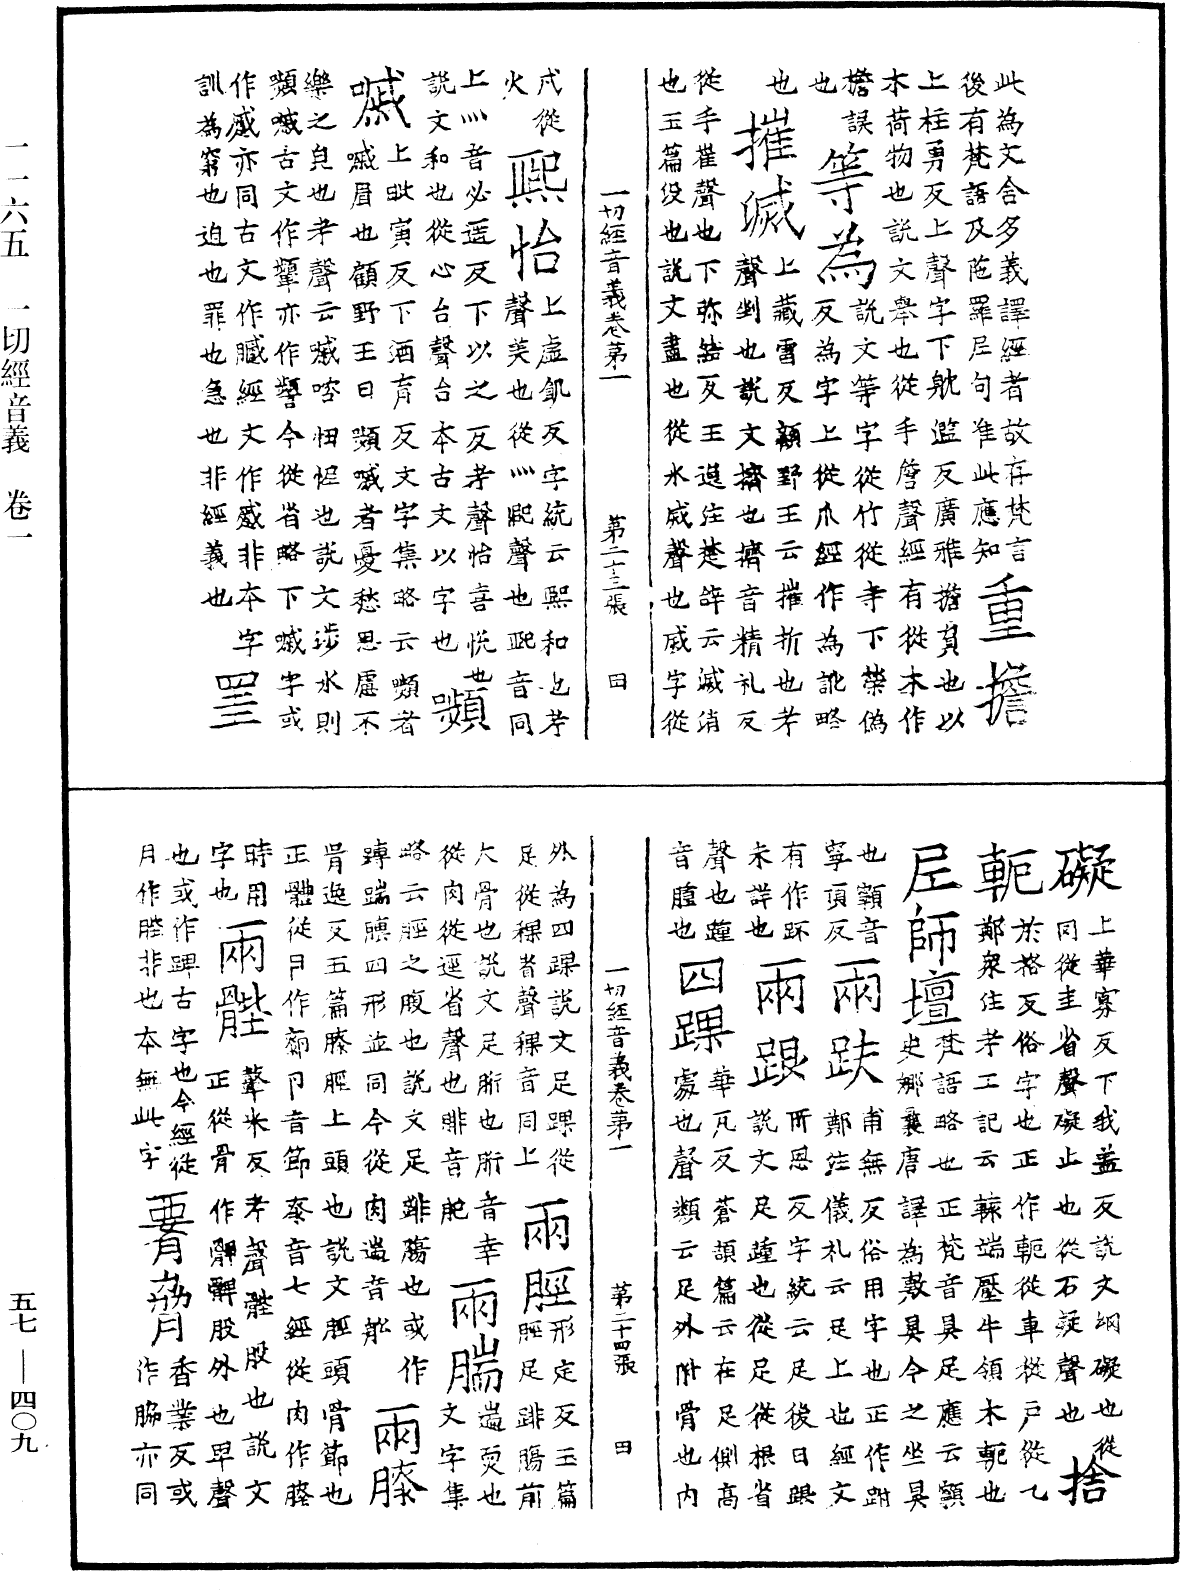 一一六五 一切經音義 卷一
此為文含多義譯經者故存梵言
後有梵語及陁羅尼句准此應知 重擔
上柱勇反上聲字下躭濫反廣雅擔負也以
木荷物也說文舉也從手詹聲經有從木作
檐誤 等為 說文等字從竹從寺下榮偽
也 反為字上從爪經作為訛略
也 摧滅 上藏雷反顧野王云摧折也考
聲剉也說文擠也擠音精礼反
從手崔聲也下弥結反王逸注楚辞云滅消
也玉篇没也說文盡也從水烕聲也烕字從
一切經音義卷第一 第二十三張 田
戌從 熙怡 上虛飢反字統云熙和也考
火 聲美也從灬巸聲也巸音同
上灬音必遥反下以之反考聲怡喜悦也
說文和也從心台聲台本古文以字也 顰
慼 上毗寅反下酒育反文字集略云顰者
慼眉也顧野王曰顰慼者憂愁思慮不
樂之皃也考聲云慼咨忸怩也說文涉水則
顰慼古文作顰亦作矉今從省略下慼字或
作慼亦同古文作臧經文作慼非本字 罣
訓為窮也迫也罪也急也非經義也
礙 上華寡反下我盖反說文網礙也從
同從圭省聲礙止也從石疑聲也 捨
軛 於格反俗字也正作軶從車從戶從乙
鄭衆住考工記云轅端壓牛領木軶也
尼師壇 梵語略也正梵音具足應云顊
史娜曩唐譯為敷具今之坐具
也顊音 兩趺 甫無反俗用字也正作跗
寧頂反 鄭注儀礼云足上也經文
有作趺 兩跟 所恩反字統云足後曰跟
未詳也 說文足踵也從足從根省
聲也踵 四踝 華瓦反蒼頡篇云在足側高
音腫也 處也聲類云足外附骨也内
一切經音義卷第一 第二十四張 田
外為四踝說文足踝從 兩脛 形定反玉篇
足從稞省聲稞音同上 脛足䠊膓前
大骨也說文足胻也胻音幸 兩腨 遄耎也
從肉從逕省聲也䠊音肥 文字集
略云脛之腹也說文足䠊膓也或作 兩膝
蹲踹膞四形並同今從肉遄音船
胥逸反五篇膝脛上頭也說文脛頭骨節也
正體從卪作厀卪音節桼音七經從肉作膝
時用 兩䏶 鼙米反考聲髀股也說文
字也 正從骨作髀髀股外也卑聲
也或作踝古字也今經從 腰脅 香業反或
月作䏶非也本無此字 作脇亦同
五七—四〇九